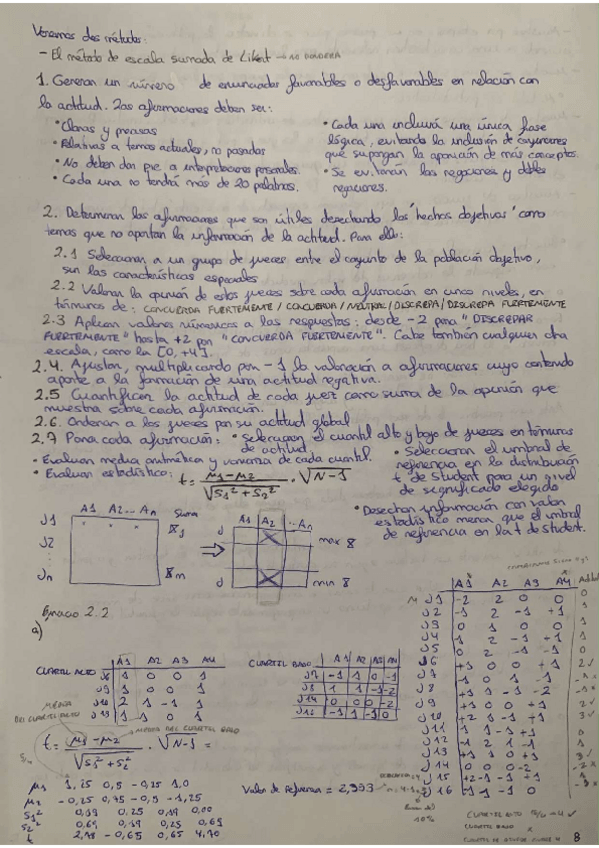 Veremos dos métodos:
- El método de escala sumada de Likert → NO PONDERA
1. Generan un número de enunciados favorables o desfavorables en relación con
la actitud. Las afirmaciones deben ser:
• Claras y precisas
• Relativas a temas actuales, no pasados
• No deben dar pie a interpretaciones personales.
• Cada una no tendrá más de 20 palabras.
• Cada una incluirá una única frase
lógica, evitando la inclusión de
que supongan la aparición de más conceptos.
• Se evitarán las negaciones y dobles
negaciones.
2. Determinan las afirmaciones que son útiles desechando los "hechos objetivos" como
temas que no aportan la información de la actitud. Para ello:
2.1 Seleccionan a un grupo de jueces entre el conjunto de la población objetivo,
sin las características especiales
2.2 Valoran la opinión de estos jueces sobre cada afirmación en cinco niveles, en
términos de: CONCUERDA FUERTEMENTE / CONCUERDA / NEUTRAL / DISCREPA / DISCREPA FUERTEMENTE
2.3 Aplican valores númericos a las respuestas: desde -2 para "DISCREPAR
FUERTEMENTE" hasta +2 por "CONCUERDA FUERTEMENTE". Cabe también cualquier otra
escala, como la [0, +4].
2.4. Ajustan, multiplicando por -1 la valoración a afirmaciones cuyo contenido
aporte a la formación de una actitud negativa.
2.5 Cuantifican la actitud de cada juez como suma de la opinión que
muestra sobre cada afirmación.
2.6. Ordenan a los jueces por su actitud global
2.7 Para cada afirmación: • Seleccionan el cuantil alto y bajo de jueces en términos
de actitud.
• Evaluan media aritmética y varianza de cada cuantil.
• Evaluan estadístico: t = μ1 - μ2 / √S1² + S2² · √N-1
• Seleccionan el umbral de
referencia en la distribución
t de Student para un nivel
de significado elegido
• Desechan información con valor
estadístico menor que el umbral
de referencia en la t de Student.
A1 A2 ... An Suma
J1
J2
Jn
A1 A2 ... An
max
min
Ejercicio 2.2
a)
CUARTEL ALTO A1 A2 A3 A4
J6 1 0 0 1
J9 1 0 0 1
J10 2 1 -1 1
J13 1 1 0 1
CUARTEL BAJO A1 A2 A3 A4
J7 -1 1 0 -1
J8 1 1 -1 -2
J14 0 0 0 -2
MEDIA DEL CUARTEL BAJO
t = μ1 - μ2 / √S1² + S2² · √N-1 =
μ1 1,25 0,5 -0,25 1,0
S1² 0,19 0,25 0,19 0,00
S2² 0,69 0,19 0,25 0,69
Valor de Referencia = 2,353
A1 A2 A3 A4
J1 -2 2 0 0
J2 -1 2 -1 +1
J3 0 1 0 0
J4 1 2 -1 +1
J5 0 2 -1 -1
J6 +1 0 0 +1
J7 -1 0 1 -1
J8 +1 1 -1 -2
J9 +1 0 0 +1
J10 +2 1 -1 +1
J11 1 1 -1 +1
J12 -1 2 1 -1
J13 +1 1 0 +1
J14 0 0 0 -2
J15 +2 -1 -1 +1
J16 -1 -1 -1 0
10%
CUARTEL ALTO
CUARTEL BAJO
8